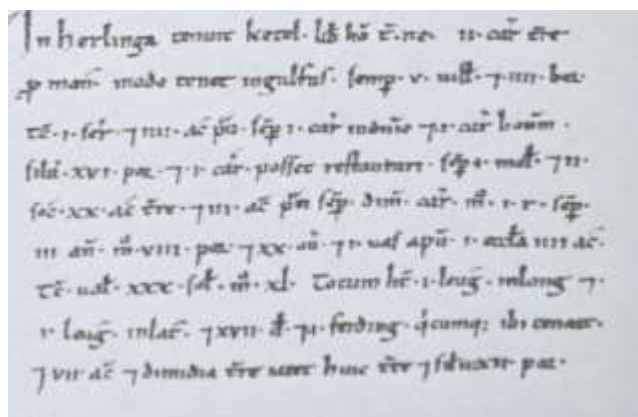 In herlinga tenuit ketel. lib̃ hõ t̃.r̃e. ii. car̃ t̃re
p̱ man̄. modo tenet ingulfus. semp̱. v. uill̃. ⁊ iiii. bor.
tc̄. i. ser̃. ⁊ iiii. ac̄ p̃ti. sēp̱ i. car̃ indñio ⁊ i. car̃ houm̃.
silũ. xvi. por. ⁊ i. car̃. posset restaurari. sēp̱ i. mol̃. ⁊ ii.
soc. xx. ac̄ t̃re. ⁊ iii. ac̄ p̃ti sēp̱. dim̃. car̃. m̊. i. r. sēp̱.
iii an̄. m̊. viii. por. ⁊ xx. ou̅. ⁊ i. uas apũ. i. eccl̃a iiii ac̄.
tc̄. ual̃. xxx. sol̃. m̊. xl. Totum ht̄. i. leug̃. inlong ⁊.
i. leug̃. inlat̃. ⁊ xvii. d̃. ⁊ i. ferding. q̇cumq; ibi teneat.
⁊ vii ac̄ ⁊ dimidia t̃re iacet huic t̃re ⁊ silu por.